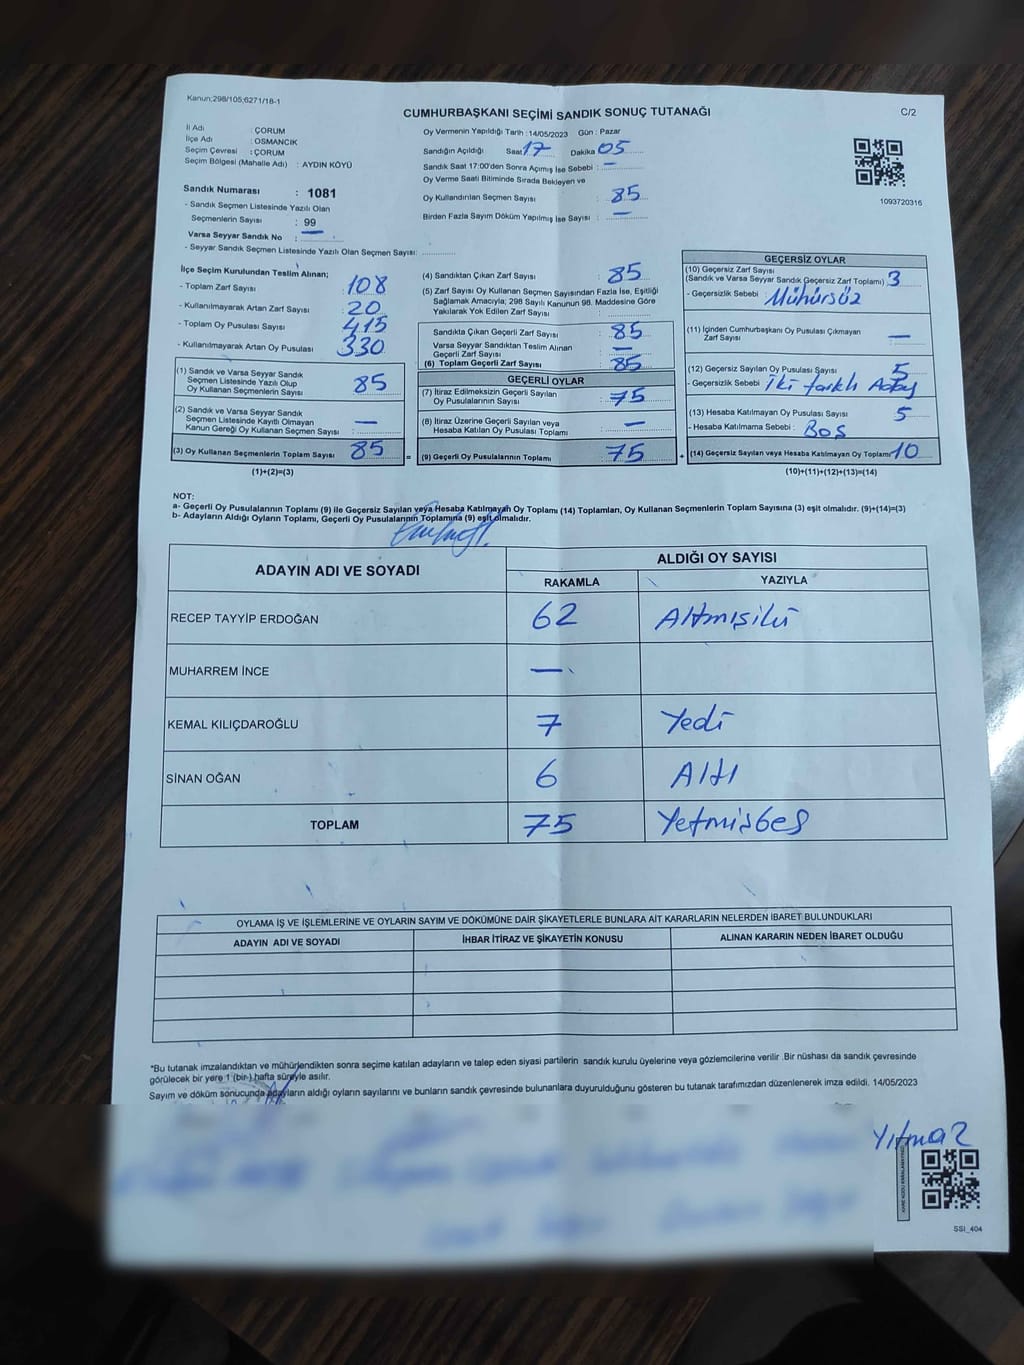 Kanun;298/105;6271/18-1
CUMHURBAŞKANI SEÇİMİ SANDIK SONUÇ TUTANAĞI
C/2
İl Adı : ÇORUM
İlçe Adı : OSMANCIK
Seçim Çevresi : ÇORUM
Seçim Bölgesi (Mahalle Adı) : AYDIN KÖYÜ
Sandık Numarası : 1081
- Sandık Seçmen Listesinde Yazılı Olan
Seçmenlerin Sayısı : 99
Varsa Seyyar Sandık No : —
- Seyyar Sandık Seçmen Listesinde Yazılı Olan Seçmen Sayısı:
Oy Vermenin Yapıldığı Tarih : 14/05/2023 Gün : Pazar
Sandığın Açıldığı Saat 17 Dakika 05
Sandık Saat 17:00'den Sonra Açımış İse Sebebi : —
Oy Verme Saati Bitiminde Sırada Bekleyen ve
Oy Kullandırılan Seçmen Sayısı : 85
Birden Fazla Sayım Döküm Yapılmış İse Sayısı : —
1093720316
İlçe Seçim Kurulundan Teslim Alınan;
- Toplam Zarf Sayısı : 108
- Kullanılmayarak Artan Zarf Sayısı : 20
- Toplam Oy Pusulası Sayısı : 415
- Kullanılmayarak Artan Oy Pusulası : 330
(1) Sandık ve Varsa Seyyar Sandık
Seçmen Listesinde Yazılı Olup
Oy Kullanan Seçmenlerin Sayısı : 85
(2) Sandık ve Varsa Seyyar Sandık
Seçmen Listesinde Kayıtlı Olmayan
Kanun Gereği Oy Kullanan Seçmen Sayısı : —
(3) Oy Kullanan Seçmenlerin Toplam Sayısı : 85
(1)+(2)=(3)
(4) Sandıktan Çıkan Zarf Sayısı : 85
(5) Zarf Sayısı Oy Kullanan Seçmen Sayısından Fazla İse, Eşitliği
Sağlamak Amacıyla; 298 Sayılı Kanunun 98. Maddesine Göre
Yakılarak Yok Edilen Zarf Sayısı :
Sandıkta Çıkan Geçerli Zarf Sayısı : 85
Varsa Seyyar Sandıktan Teslim Alınan
Geçerli Zarf Sayısı : —
(6) Toplam Geçerli Zarf Sayısı : 85
GEÇERLİ OYLAR
(7) İtiraz Edilmeksizin Geçerli Sayılan
Oy Pusulalarının Sayısı : 75
(8) İtiraz Üzerine Geçerli Sayılan veya
Hesaba Katılan Oy Pusulası Toplamı : —
= (9) Geçerli Oy Pusulalarının Toplamı : 75
GEÇERSİZ OYLAR
(10) Geçersiz Zarf Sayısı
(Sandık ve Varsa Seyyar Sandık Geçersiz Zarf Toplamı) : 3
- Geçersizlik Sebebi : Mühürsüz
(11) İçinden Cumhurbaşkanı Oy Pusulası Çıkmayan
Zarf Sayısı : —
(12) Geçersiz Sayılan Oy Pusulası Sayısı : 5
- Geçersizlik Sebebi : İki farklı Aday
(13) Hesaba Katılmayan Oy Pusulası Sayısı : 5
- Hesaba Katılmama Sebebi : Boş
+ (14) Geçersiz Sayılan veya Hesaba Katılmayan Oy Toplamı : 10
(10)+(11)+(12)+(13)=(14)
NOT:
a- Geçerli Oy Pusulalarının Toplamı (9) ile Geçersiz Sayılan veya Hesaba Katılmayan Oy Toplamı (14) Toplamları, Oy Kullanan Seçmenlerin Toplam Sayısına (3) eşit olmalıdır. (9)+(14)=(3)
b- Adayların Aldığı Oyların Toplamı, Geçerli Oy Pusulalarının Toplamına (9) eşit olmalıdır.
ADAYIN ADI VE SOYADI ALDIĞI OY SAYISI
RAKAMLA YAZIYLA
RECEP TAYYİP ERDOĞAN 62 Altmışiki
MUHARREM İNCE —
KEMAL KILIÇDAROĞLU 7 Yedi
SİNAN OĞAN 6 Altı
TOPLAM 75 Yetmişbeş
OYLAMA İŞ VE İŞLEMLERİNE VE OYLARIN SAYIM VE DÖKÜMÜNE DAİR ŞİKAYETLERLE BUNLARA AİT KARARLARIN NELERDEN İBARET BULUNDUKLARI
ADAYIN ADI VE SOYADI İHBAR İTİRAZ VE ŞİKAYETİN KONUSU ALINAN KARARIN NEDEN İBARET OLDUĞU
*Bu tutanak imzalandıktan ve mühürlendikten sonra seçime katılan adayların ve talep eden siyasi partilerin sandık kurulu üyelerine veya gözlemcilerine verilir .Bir nüshası da sandık çevresinde
görülecek bir yere 1 (bir ) hafta süreyle asılır.
Sayım ve döküm sonucunda adayların aldığı oyların sayılarını ve bunların sandık çevresinde bulunanlara duyurulduğunu gösteren bu tutanak tarafımızdan düzenlenerek imza edildi. 14/05/2023
Yılmaz
SSI_404